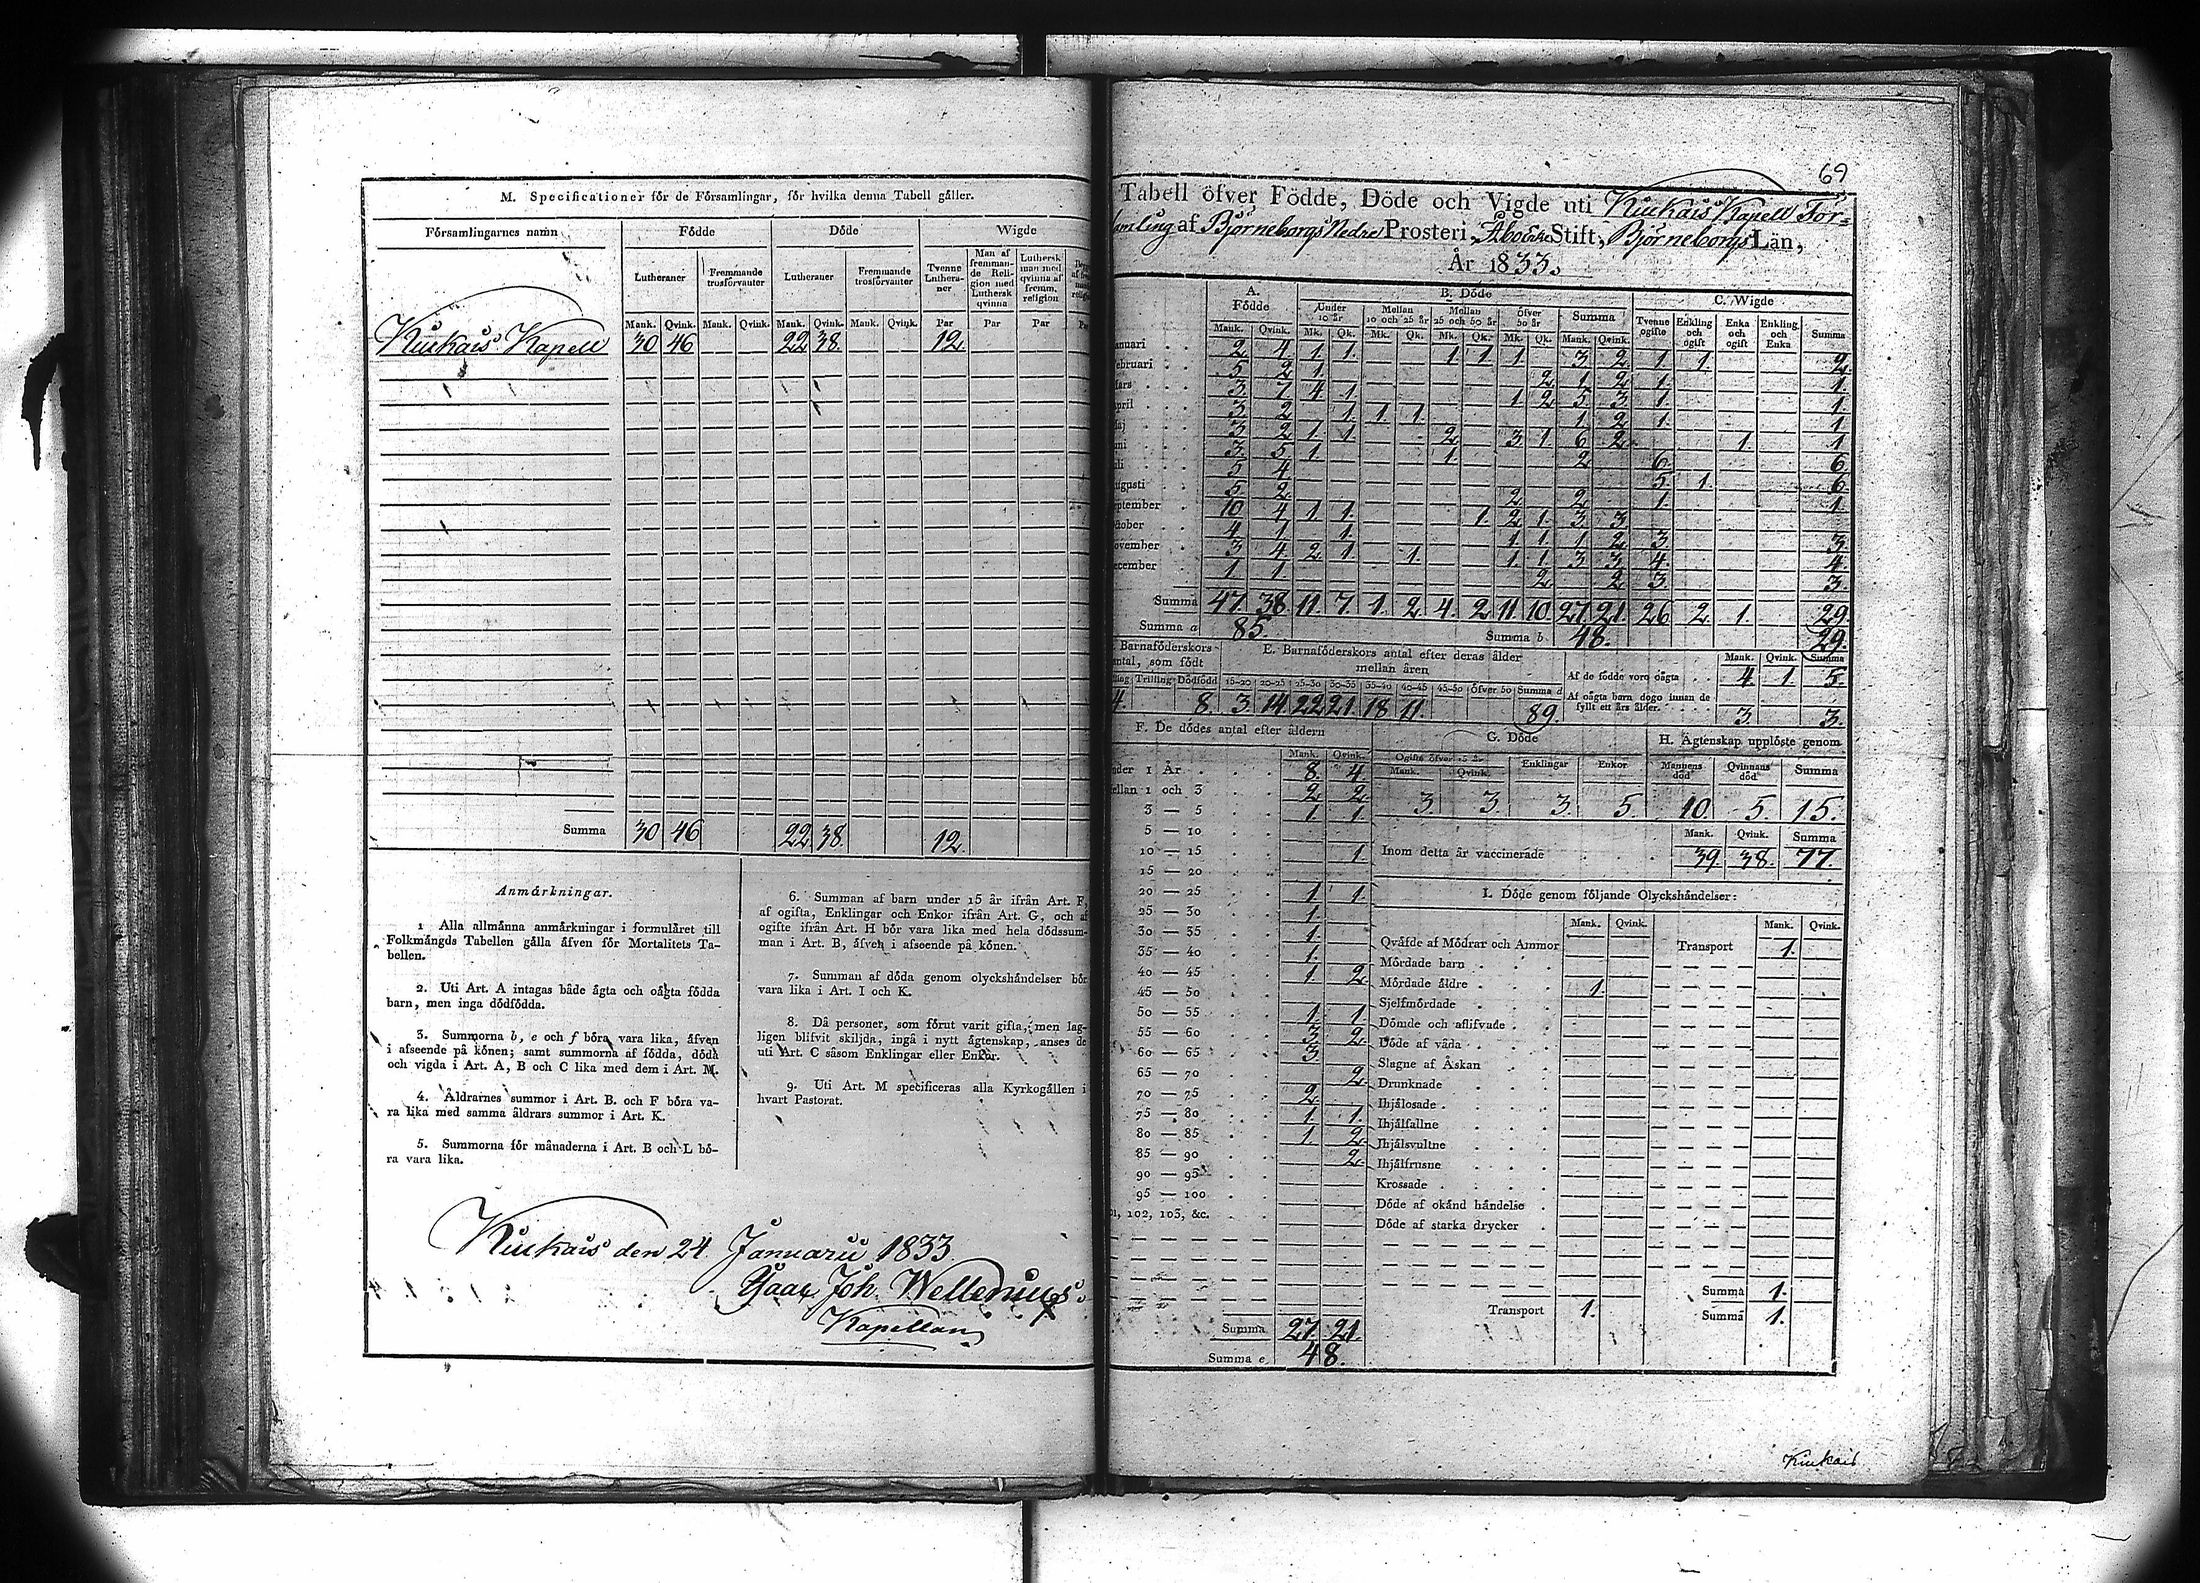 M. Specificationer för de Församlingar, för hvilka denna Tabell gäller.
Församlingarnes namn Födde Döde Wigde
Lutheraner Fremmande trosförvanter Lutheraner Fremmande trosförvanter Tvenne Lutheraner Man af fremmande Religion med Luthersk qvinna Luthersk man med qvinna af fremm. religion
Mank. Qvink. Mank. Qvink. Mank. Qvink. Mank. Qvink. Par Par Par Par
Kiukais Kapell 30 46 22 38. 12
Summa 30 46 22 38. 12.
Anmärkningar.
1 Alla allmänna anmärkningar i formuläret till
Folkmängds Tabellen gälla äfven för Mortalitets Ta-
bellen.
2. Uti Art. A intagas både ägta och oägta födda
barn, men inga dödfödda.
3. Summorna b, e och f böra vara lika, äfven
i afseende på könen; samt summorna af födda, döda
och vigda i Art. A, B och C lika med dem i Art. M.
4. Åldrarnes summor i Art. B. och F böra va-
ra lika med samma åldrars summor i Art. K.
5. Summorna för månaderna i Art. B och L bö-
ra vara lika.
6. Summan af barn under 15 år ifrån Art. F,
af ogifta, Enklingar och Enkor ifrån Art. G, och af
ogifte ifrån Art. H bör vara lika med hela dödssum-
man i Art. B, äfven i afseende på könen.
7. Summan af döda genom olyckshändelser bör
vara lika i Art. I och K.
8. Då personer, som förut varit gifta, men lag-
ligen blifvit skiljda, ingå i nytt ägtenskap, anses de
uti Art. C såsom Enklingar eller Enkor.
9. Uti Art. M specificeras alla Kyrkogällen i
hvart Pastorat.
Kiukais den 24 Januarii 1833
Isaac Joh. Wellenius
Kapellan
69
Tabell öfver Födde, Döde och Vigde uti Kiukais Kapell För=
samling af Björneborgs Nedre Prosteri, Åbo Erke Stift, Björneborgs Län,
År 1833.
A. Födde B. Döde C. Wigde
Under 10 år Mellan 10 och 25 år Mellan 25 och 50 år Öfver 50 år Summa Tvenne ogifte Enkling och ogift Enka och ogift Enkling och Enka Summa
Mank. Qvink. Mk. Qk. Mk. Qk. Mk. Qk. Mk. Qk. Mank. Qvink.
anuari 2 4 1 1 1 1 1 3 2 1 1 2
ebruari 5 2 1 2 1 2 1 1
ars 3 7 4 1 1 2 5 3 1 1
pril 3 2 1 1 1 1 2 1 1
aj 3 2 1 1 2 3 1 6 2 1 1
uni 3 5 1 1 2 6 6
uli 5 4 5 1 6
ugusti 5 2 2 2 1 1
eptember 10 4 1 1 1 2 1 3 3
ktober 4 1 1 1 1 1 2 3 3
ovember 3 4 2 1 1 1 1 3 3 4 4
ecember 1 1 2 2 3 3
Summa 47 38 11 7 1 2 4 2 11 10 27 21 26 2 1 29
Summa a 85. Summa b 48. 29.
Barnaföderskors antal, som födt E. Barnaföderskors antal efter deras ålder mellan åren Mank. Qvink. Summa
Trilling Dödfödd 15-20 20-25 25-30 30-35 35-40 40-45 45-50 Öfver 50 Summa d
4. 8. 3 14 22 21 18 11 89.
Af de födde voro oägta 4. 1 5.
Af oägta barn dogo innan de fyllt ett års ålder 3 3.
F. De dödes antal efter åldern G. Döde H. Ägtenskap upplöste genom
Mank. Qvink. Ogifte öfver 15 år Mank. Qvink. Enklingar Enkor Mannens död Qvinnans död Summa
nder 1 År 8 4
ellan 1 och 3 2 2
3. 3 3. 5. 10. 5. 15.
3 — 5 1 1
5 — 10
10 — 15 1.
15 — 20
20 — 25 1 1
25 — 30 1.
30 — 35 1.
35 — 40 1.
40 — 45 1 2
45 — 50
50 — 55 1 1
55 — 60 3 2
60 — 65 3
65 — 70 2
70 — 75 2.
75 — 80 1 1
80 — 85 1 2
85 — 90 2
90 — 95
95 — 100
101, 102, 103, &c.
Summa 27 21.
Summa e 48.
Mank. Qvink. Summa
Inom detta år vaccinerade 39. 38. 77.
I. Döde genom följande Olyckshändelser:
Mank. Qvink. Mank. Qvink.
Qväfde af Mödrar och Ammor Transport 1.
Mördade barn
Mördade äldre 1
Sjelfmördade
Dömde och aflifvade
Döde af våda
Slagne af Åskan
Drunknade
Ihjälosade
Ihjälfallne
Ihjälsvultne
Ihjälfrusne
Krossade
Döde af okänd händelse
Döde af starka drycker
Summa 1.
Transport 1. Summa 1.
Kiukais